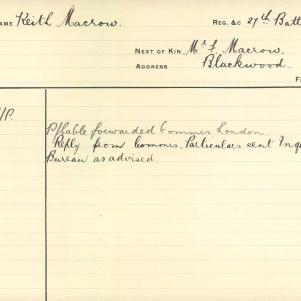 AME Keith Macrow. REG. &C 27th Batt
NEXT OF KIN Mr F Macrow.
ADDRESS Blackwood.
P.
P/Cable forwarded Commes London.
Reply from Commes, Particulars sent Inq
Bureau as advised.